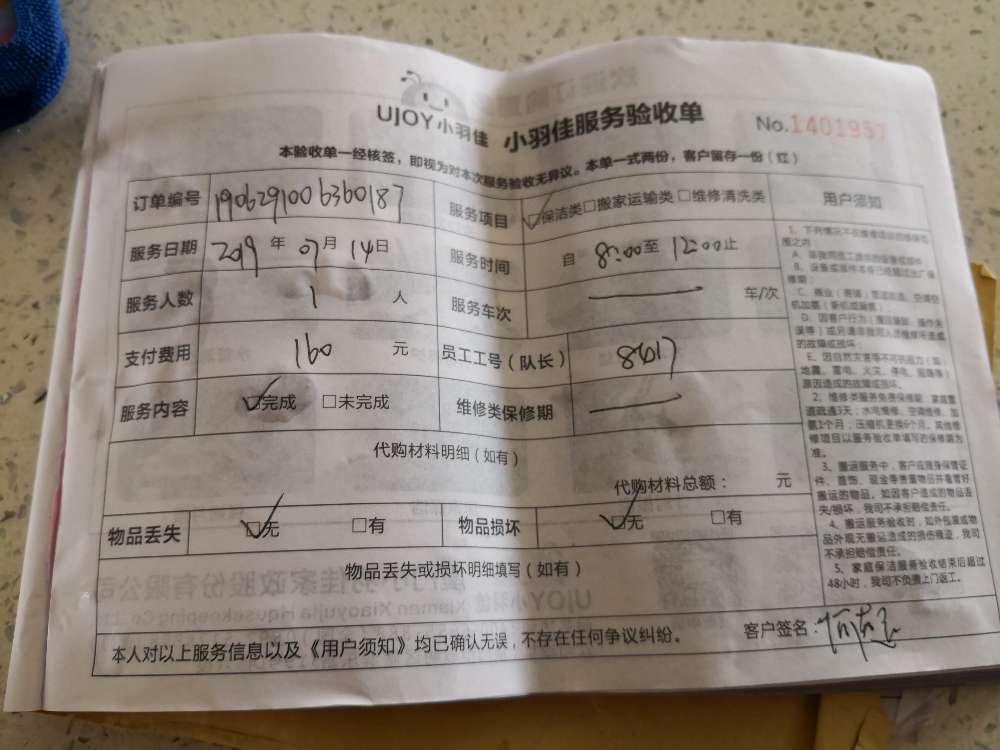 UJOY小羽佳 小羽佳服务验收单 No.1401957
本验收单一经核签，即视为对本次服务验收无异议。本单一式两份，客户留存一份（红）
订单编号 1906291006360187 服务项目 ☑保洁类 □搬家运输类 □维修清洗类 用户须知
服务日期 2019 年 07 月 14 日 服务时间 自 8:00 至 12:00 止
服务人数 1 人 服务车次 车/次
支付费用 160 元 员工工号（队长） 8617
服务内容 ☑完成 □未完成 维修类保修期
代购材料明细（如有）
代购材料总额： 元
物品丢失 ☑无 □有 物品损坏 ☑无 □有
物品丢失或损坏明细填写（如有）
本人对以上服务信息以及《用户须知》均已确认无误，不存在任何争议纠纷。 客户签名：
E、因自然灾害等不可抗力（如
地震、雷电、火灾、停电、超载等）
原因造成的故障或损坏。
2、维修类服务免费保修期：家庭管
道疏通3天；水电维修、空调维修、加
氟1个月；压缩机更换6个月。其他维
修项目以服务验收单填写的保修期为
准。
3、搬运服务中，客户应随身保管证
件、首饰、现金等贵重物品并看管好
搬运的物品。如因客户造成的物品丢
失/损坏，我司不承担赔偿责任。
4、搬运服务验收时，如外包装或物
品外观无搬运造成的损伤痕迹，我司
不承担赔偿责任。
5、家庭保洁服务验收结束后超过
48小时，我司不负责上门返工。